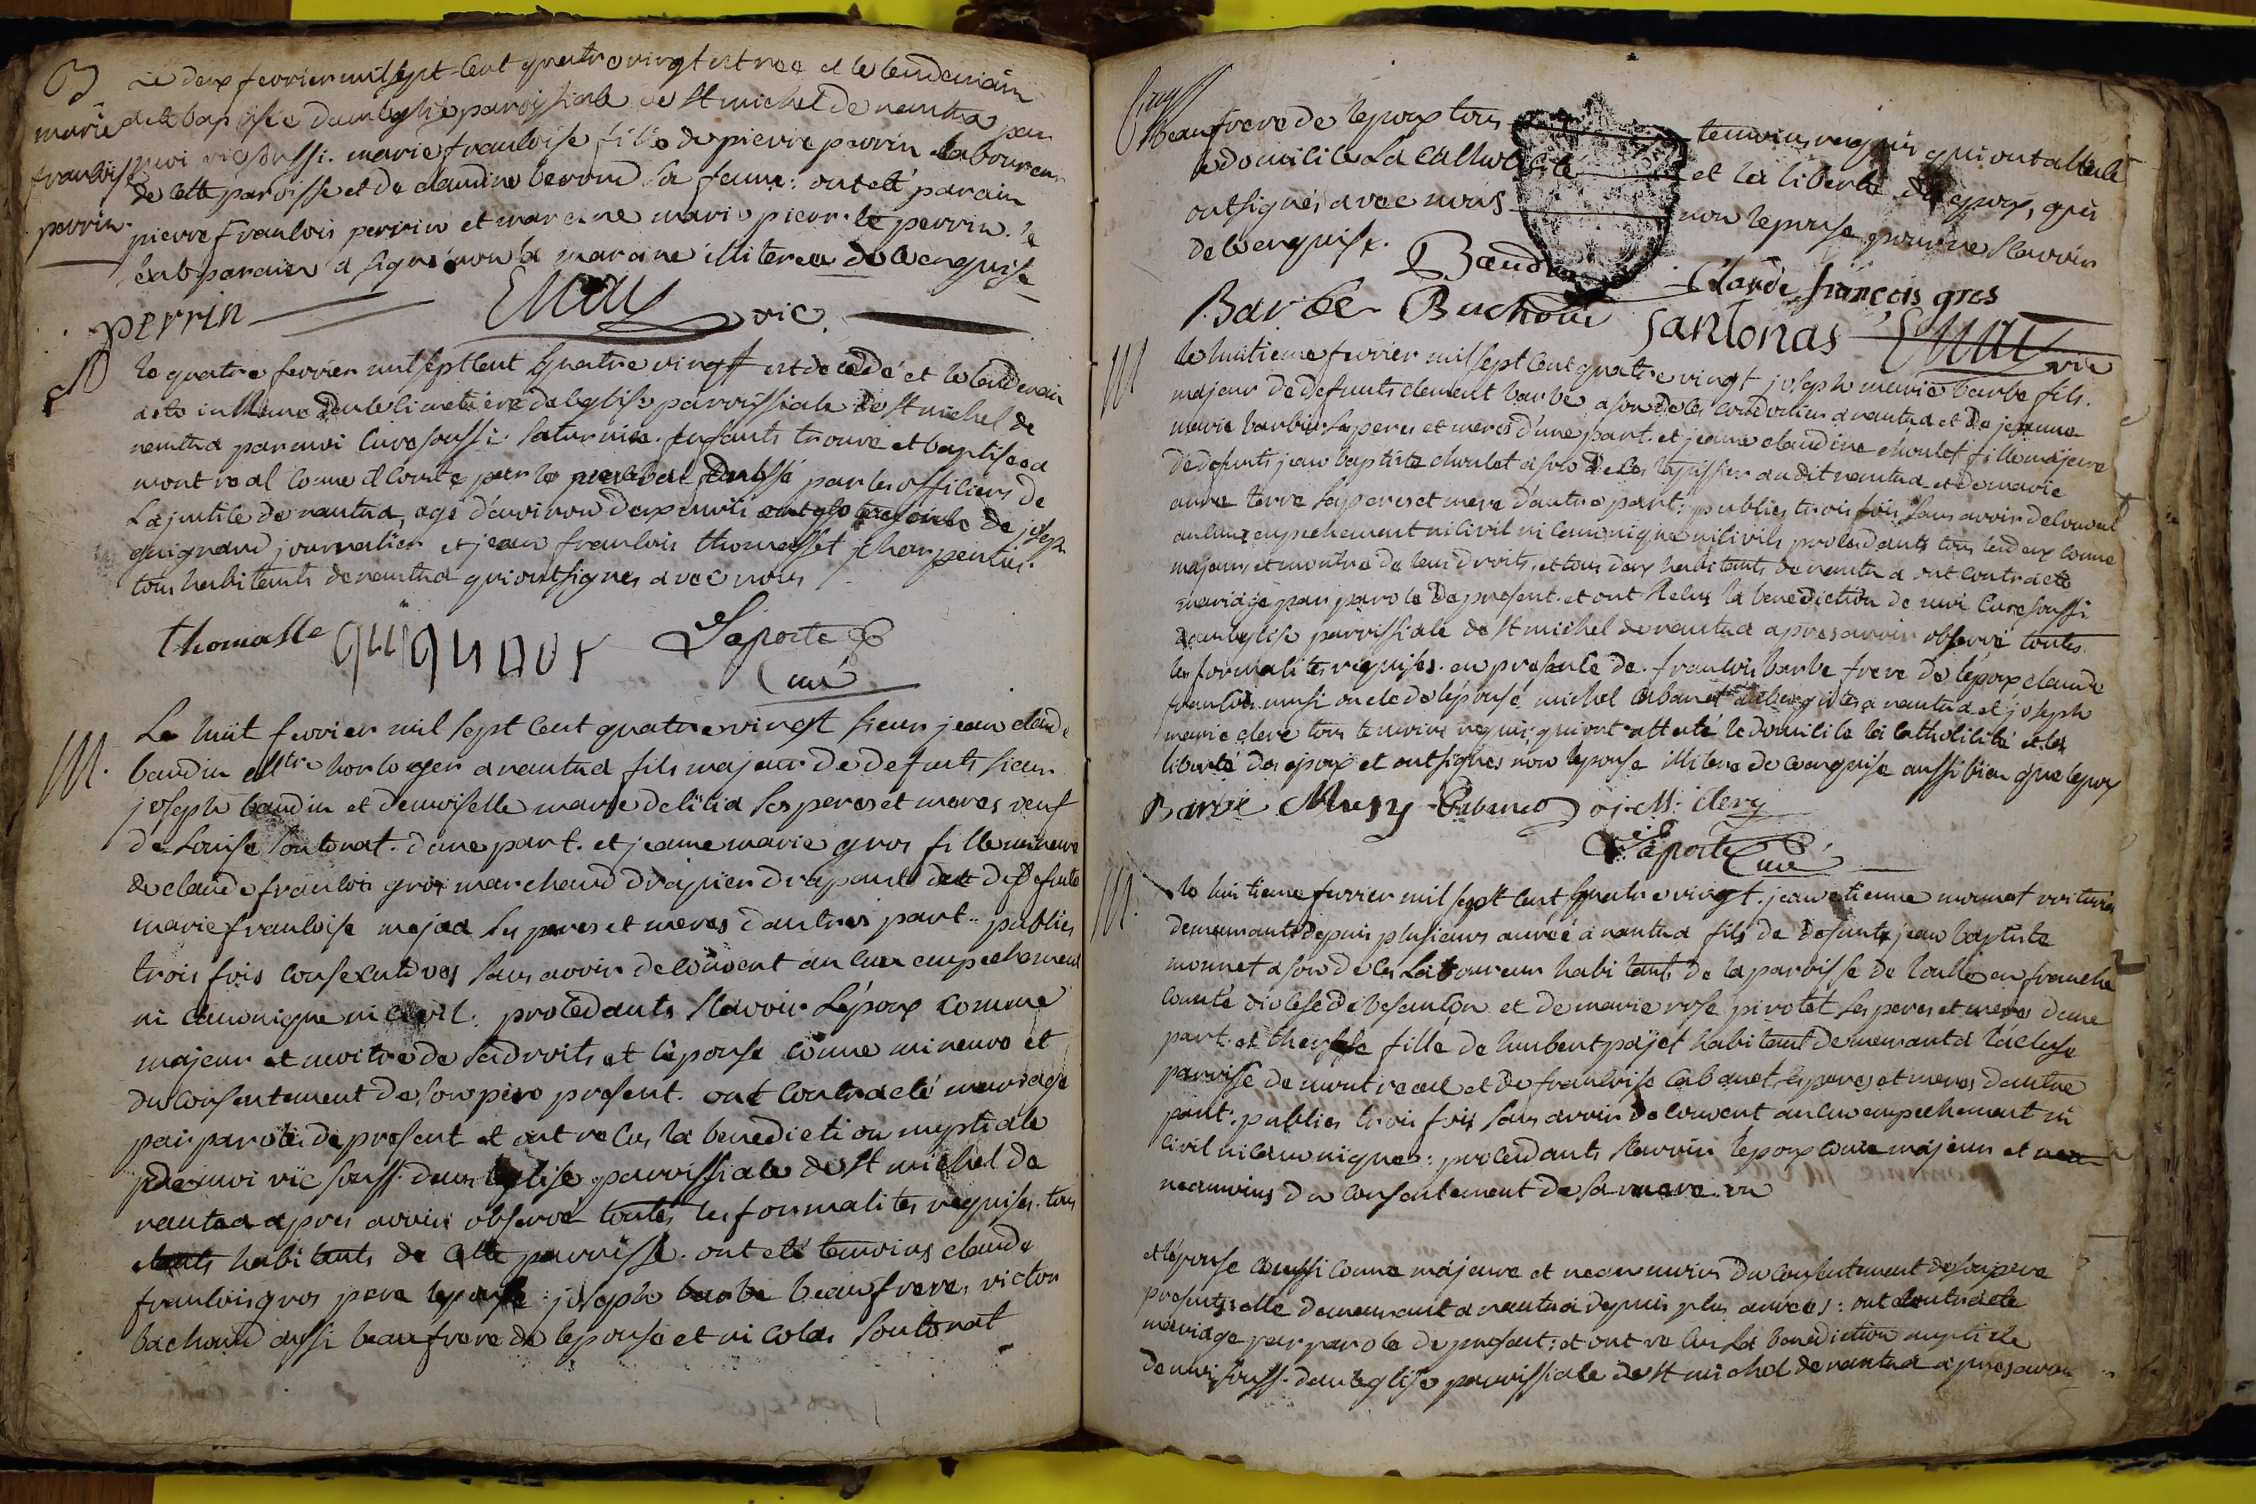 B
marie
francoise
perrin.
Le deux fevrier mil sept cent quatre vingt est née et le lendemain
a eté baptisée dans leglise paroissiale de st michel de nantua par
moi vic soussi. marie francoise fille de pierre perrin laboureur
de cette paroisse et de claudine berond sa femme: ont eté parain
pierre francois perrin et maraine marie pierrette perrin. le
parain a signé non la maraine illiteree de ce enquise
perrin Emay vic.
S
le quatre fevrier mil sept cent quatre vingt est decedé et le lendemain
a ete inhumé dans le cimetiere deglise parroissiale de st michel de
nantua par moi curé soussi. saturnin. enfants trouvé et baptisé a
montreal comme il conste par le verbal dressé par les officiers de
la justice de nantua, agé d'environ deux mois en presence de joseph
guignard journalier et jean francois thomasset charpentier.
tous habitants de nantua qui ont signés avec nous
thomasse guignard Laporte
Curé
M.
Le huit fevrier mil sept cent quatre vingt sieur jean claude
baudin mtre horloger a nantua fils majeur de defunts sieur
joseph baudin et demoiselle marie delilia ses peres et meres veuf
de Louise santonat. d'une part. et jeanne marie gros fille mineure
de claude francois gros marchand drapier drapant et de defunte
marie francoise majaa ses peres et meres dautres part.. publiés
trois fois consecutives sans avoir decouvent aucun empechement
ni canonique ni civil. procedants scavoir l'époux comme
majeur et moitre de ses droits et l'epouse comme mineure et
du consentement de son pere present. ont contracté mariage
par parole de present et ont recus la benediction nuptiale
de moi vic souss. dans leglise parroissiale de st michel de
nantua apres avoir observé toutes les formalites requises. tous
habitants de cette parroisse. ont eté temoins claude
francois gros pere lepouse: joseph barbe beaufrere, victor
bachoud aussi beaufrere de lepouse et nicolas santonat
beaufrere de lepoux tous temoins requis qui ont attesté
le domicile la catholicité et la liberté des epoux, qui
ont signés avec nous non lepouse pour ne scavoir
de ce enquise.
Baudin Claude françois gros
Barbe Buchoud Santonas Emay vic
M
le huitieme fevrier mil sept cent quatre vingt joseph marie barbe fils
majeur de defunts clement barbe a son deces cordonier a nantua et de jeanne
marie barbier ses peres et meres d'une part. et jeanne claudine choulet fille majeure
de defunts jean baptiste choulet a son deces tapissier audit nantua et de marie
anne terre ses peres et mere d'autre part: publiés trois fois sans avoir decouvent
aucun empechement ni civil ni canonique procedants tous les deux comme
majeurs et moitre de leurs droits. et tous deux habitants de nantua ont contracté
mariage par parole de present. et ont recus la benediction de moi curé soussi
dans leglise parroissiale de st michel de nantua apres avoir observé toutes
les formalités requises. en presence de. francois barbe frere de l'epoux claude
francois musi oncle de l'épouse michel cabanet aubergistes a nantua et joseph
marie clerc tous temoins requis, qui ont attesté le domicile la catholicité et la
liberté des epoux et ont signés non lepouse illiterée de ce enquise aussi bien que lepoux
Barbe Musy Cabanet j. M. clerg
Laporte Curé
M.
le huitieme fevrier mil sept cent quatre vingt. jean etienne monnet voiturier
demeurants depuis plusieurs année a nantua fils de defunts jean baptiste
monnet a son deces laboureur habitants de la paroisse de en franche
comté diocese de besançon et de marie rose pirotet ses peres et meres d'une
part. et therese fille de humbert pajet habitant demeurant a lacluse
paroisse de montreal et de francoise cabanet ses peres et meres dautre
part. publies trois fois sans avoir decouvent aucun empechement ni
civil ni canonique: procedants scavoir lepoux come majeur et
neanmoins du consentement de sa mere
et lépouse aussi comme majeure et neanmoins du consentement de son pere
present: elle demeurant a nantua depuis plus années: ont contracté
mariage par parole de present: et ont recus la benediction nuptiale
de moi souss. dans leglise parroissiale de st michel de nantua apres avoir